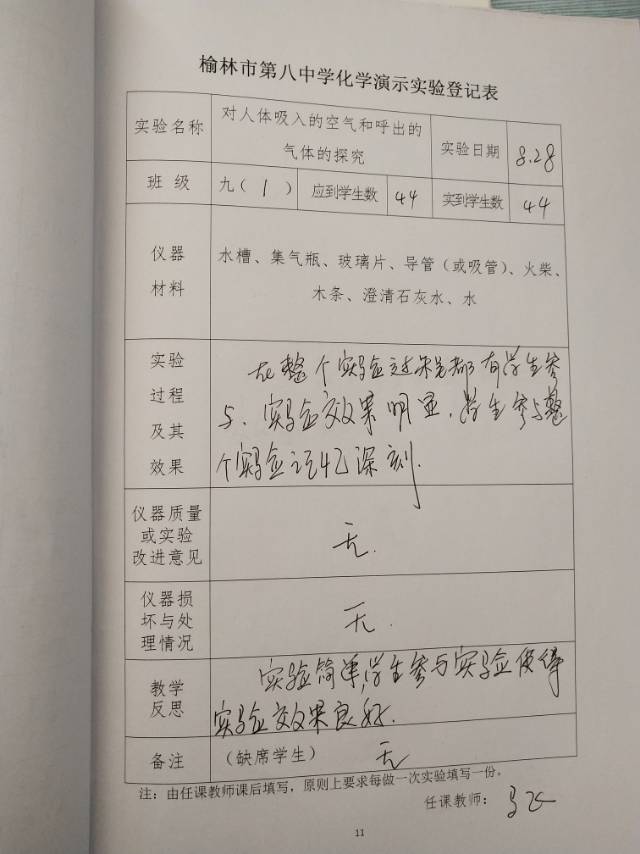 榆林市第八中学化学演示实验登记表
实验名称
对人体吸入的空气和呼出的
气体的探究
实验日期
8.28
班 级
九（1）
应到学生数
44
实到学生数
44
仪器
材料
水槽、集气瓶、玻璃片、导管（或吸管）、火柴、
木条、澄清石灰水、水
实验
过程
及其
效果
在整个实验过程都有学生参
与．实验效果明显．学生参与整
个实验记忆深刻．
仪器质量
或实验
改进意见
无．
仪器损
坏与处
理情况
无．
教学
反思
实验简单，学生参与实验使得
实验效果良好．
备注
（缺席学生）
无
注：由任课教师课后填写，原则上要求每做一次实验填写一份。
任课教师：
11